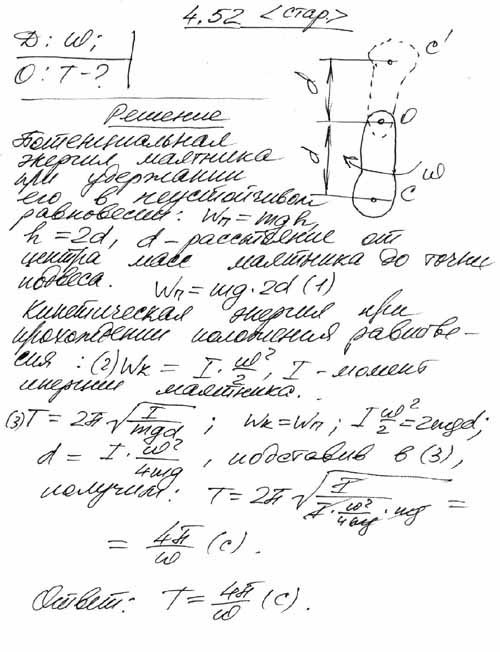 4.52 <стар.>
Д: ω;
О: T-?
Решение
Потенциальная
энергия маятника
при удержании
его в неустойчивом
равновесии: Wп = mgh,
h = 2d, d - расстояние от
центра масс маятника до точки
подвеса. Wп = mg·2d (1)
Кинетическая энергия при
прохождении положения равнове-
сия: (2) Wк = I·ω²/2, I - момент
инерции маятника.
(3) T = 2π√(I/mgd); Wк = Wп; I ω²/2 = 2mgd;
d = I·ω²/4mg, подставив в (3),
получим: T = 2π√(I/(I·ω²/4mg·mg)) =
= 4π/ω (с).
Ответ: T = 4π/ω (с).
C'
d
O
d
ω
C